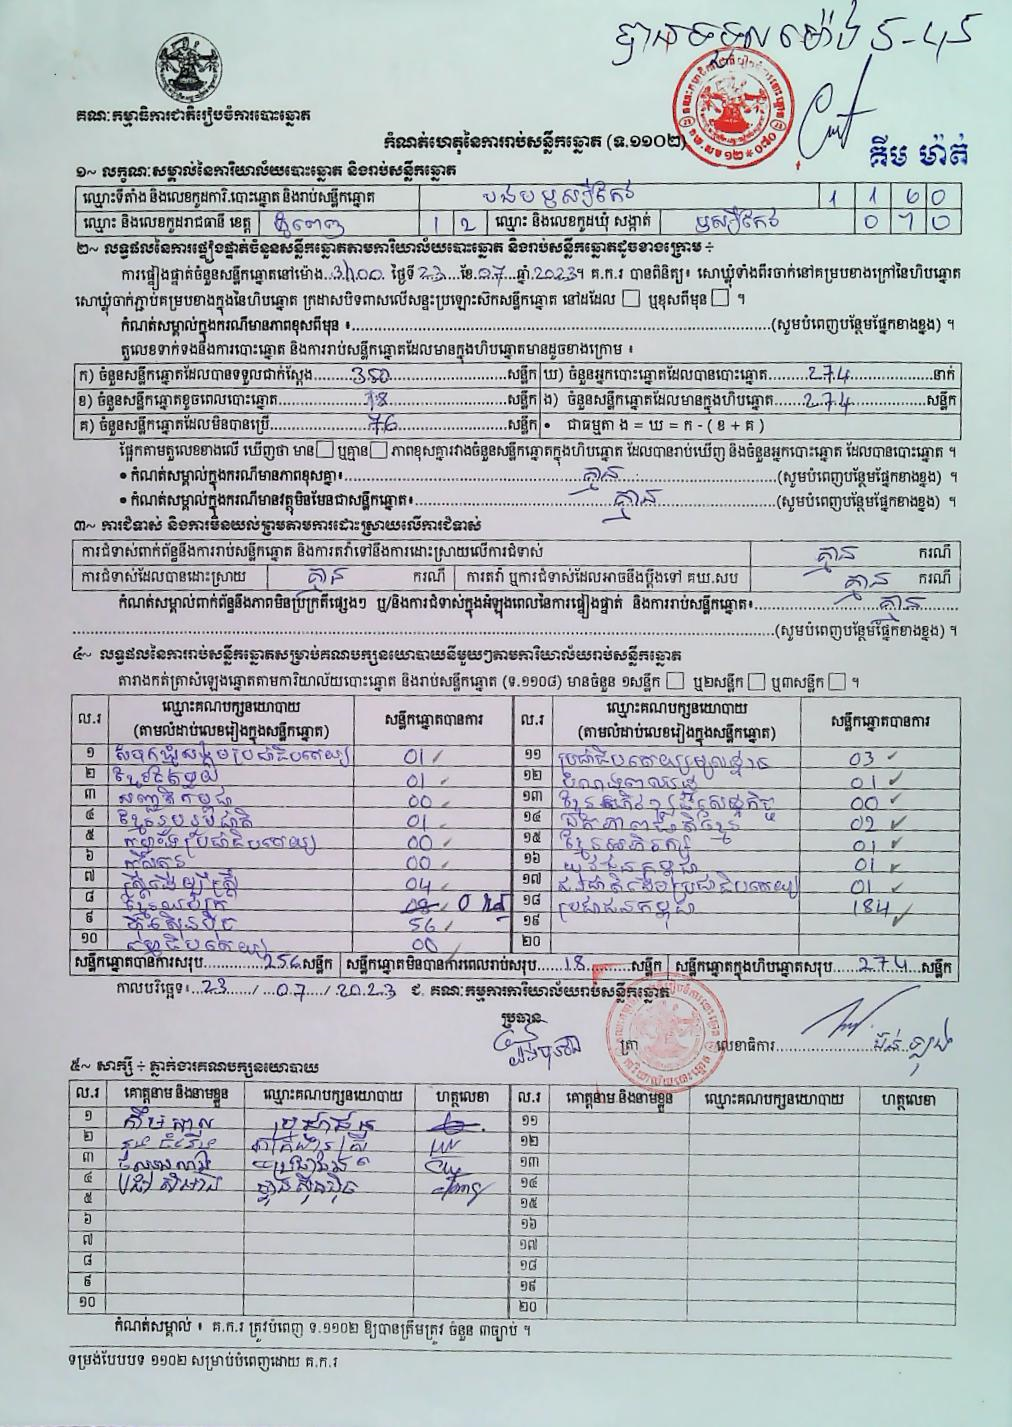 បានទទួលម៉ោង ៥-៤៥
គណៈកម្មាធិការជាតិរៀបចំការបោះឆ្នោត
កំណត់ហេតុនៃការរាប់សន្លឹកឆ្នោត (ទ.១១០២)
គឹម ម៉ាត់
១~ លក្ខណៈសម្គាល់នៃការិយាល័យបោះឆ្នោត និងរាប់សន្លឹកឆ្នោត
ឈ្មោះទីតាំង និងលេខកូដការិ.បោះឆ្នោត និងរាប់សន្លឹកឆ្នោត ឫស្សីកែវ 1 1 6 0
ឈ្មោះ និងលេខកូដរាជធានី ខេត្ត ភ្នំពេញ 1 2 ឈ្មោះ និងលេខកូដឃុំ សង្កាត់ ឫស្សីកែវ 0 7 0
២~ លទ្ធផលនៃការផ្ទៀងផ្ទាត់ចំនួនសន្លឹកឆ្នោតតាមការិយាល័យបោះឆ្នោត និងរាប់សន្លឹកឆ្នោតដូចខាងក្រោម ÷
ការផ្ទៀងផ្ទាត់ចំនួនសន្លឹកឆ្នោតនៅម៉ោង 3:00 ថ្ងៃទី 23 ខែ 07 ឆ្នាំ 2023។ គ.ក.រ បានពិនិត្យ៖ សោឃ្លុំទាំងពីរចាក់នៅគម្របខាងក្រៅនៃហិបឆ្នោត
សោឃ្លុំចាក់ភ្ជាប់គម្របខាងក្នុងនៃហិបឆ្នោត ក្រដាសបិទពាសលើសន្ទះប្រឡោះស៊កសន្លឹកឆ្នោត នៅដដែល ☐ ឬខុសពីមុន ☐ ។
កំណត់សម្គាល់ក្នុងករណីមានភាពខុសពីមុន ៖ (សូមបំពេញបន្ថែមផ្នែកខាងខ្នង) ។
តួលេខទាក់ទងនឹងការបោះឆ្នោត និងការរាប់សន្លឹកឆ្នោតដែលមានក្នុងហិបឆ្នោតមានដូចខាងក្រោម ៖
ក) ចំនួនសន្លឹកឆ្នោតដែលបានទទួលជាក់ស្តែង 350 សន្លឹក ឃ) ចំនួនអ្នកបោះឆ្នោតដែលបានបោះឆ្នោត 274 នាក់
ខ) ចំនួនសន្លឹកឆ្នោតខូចពេលបោះឆ្នោត សន្លឹក ង) ចំនួនសន្លឹកឆ្នោតដែលមានក្នុងហិបឆ្នោត 274 សន្លឹក
គ) ចំនួនសន្លឹកឆ្នោតដែលមិនបានប្រើ 76 សន្លឹក • ជាធម្មតា ង = ឃ = ក - ( ខ + គ )
ផ្អែកតាមតួលេខខាងលើ ឃើញថា មាន ☐ ឬគ្មាន ☐ ភាពខុសគ្នារវាងចំនួនសន្លឹកឆ្នោតក្នុងហិបឆ្នោត ដែលបានរាប់ឃើញ និងចំនួនអ្នកបោះឆ្នោត ដែលបានបោះឆ្នោត ។
• កំណត់សម្គាល់ក្នុងករណីមានភាពខុសគ្នា៖ គ្មាន (សូមបំពេញបន្ថែមផ្នែកខាងខ្នង) ។
• កំណត់សម្គាល់ក្នុងករណីមានវត្ថុមិនមែនជាសន្លឹកឆ្នោត៖ គ្មាន (សូមបំពេញបន្ថែមផ្នែកខាងខ្នង) ។
៣~ ការជំទាស់ និងការមិនយល់ព្រមតាមការដោះស្រាយលើការជំទាស់
ការជំទាស់ពាក់ព័ន្ធនឹងការរាប់សន្លឹកឆ្នោត និងការតវ៉ាទៅនឹងការដោះស្រាយលើការជំទាស់ គ្មាន ករណី
ការជំទាស់ដែលបានដោះស្រាយ គ្មាន ករណី ការតវ៉ា ឬការជំទាស់ដែលអាចនឹងប្តឹងទៅ គឃ.សប គ្មាន ករណី
កំណត់សម្គាល់ពាក់ព័ន្ធនឹងភាពមិនប្រក្រតីផ្សេងៗ ឬ/និងការជំទាស់ក្នុងអំឡុងពេលនៃការផ្ទៀងផ្ទាត់ និងការរាប់សន្លឹកឆ្នោត៖ គ្មាន
(សូមបំពេញបន្ថែមផ្នែកខាងខ្នង) ។
៤~ លទ្ធផលនៃការរាប់សន្លឹកឆ្នោតសម្រាប់គណបក្សនយោបាយនីមួយៗតាមការិយាល័យរាប់សន្លឹកឆ្នោត
តារាងកត់ត្រាសំឡេងឆ្នោតតាមការិយាល័យបោះឆ្នោត និងរាប់សន្លឹកឆ្នោត (ទ.១១០៨) មានចំនួន ១សន្លឹក ☐ ឬ២សន្លឹក ☐ ឬ៣សន្លឹក ☐ ។
ល.រ ឈ្មោះគណបក្សនយោបាយ (តាមលំដាប់លេខរៀងក្នុងសន្លឹកឆ្នោត) សន្លឹកឆ្នោតបានការ ល.រ ឈ្មោះគណបក្សនយោបាយ (តាមលំដាប់លេខរៀងក្នុងសន្លឹកឆ្នោត) សន្លឹកឆ្នោតបានការ
១ សំបុកឃ្មុំសង្គមប្រជាធិបតេយ្យ 01 ១១ ប្រជាធិបតេយ្យមូលដ្ឋាន 03
២ ខ្មែរឈប់ក្រ 01 ១២ 01
៣ សញ្ជាតិកម្ពុជា 00 ១៣ ខ្មែរអភិវឌ្ឍន៍សេដ្ឋកិច្ច 00
៤ ខ្មែររួបរួមជាតិ 01 ១៤ ឯកភាពជាតិខ្មែរ 02
៥ កម្លាំងប្រជាធិបតេយ្យ 00 ១៥ ខ្មែរអភិរក្ស 01
៦ កសិករ 00 ១៦ យុវជនកម្ពុជា 01
៧ ស្ត្រីដើម្បីស្ត្រី 04 ១៧ ជនជាតិដើមប្រជាធិបតេយ្យ 01
៨ ១៨ ប្រជាជនកម្ពុជា 184
៩ ហ៊្វុនស៊ិនប៉ិច 56 ១៩
១០ ធម្មាធិបតេយ្យ 00 ២០
សន្លឹកឆ្នោតបានការសរុប 256 សន្លឹក សន្លឹកឆ្នោតមិនបានការពេលរាប់សរុប 18 សន្លឹក សន្លឹកឆ្នោតក្នុងហិបឆ្នោតសរុប 274 សន្លឹក
កាលបរិច្ឆេទ៖ 23 / 07 / 2023 ជ. គណៈកម្មការការិយាល័យរាប់សន្លឹកឆ្នោត
ប្រធាន
ត្រា លេខាធិការ
៥~ សាក្សី ÷ ភ្នាក់ងារគណបក្សនយោបាយ
ល.រ គោត្តនាម និងនាមខ្លួន ឈ្មោះគណបក្សនយោបាយ ហត្ថលេខា ល.រ គោត្តនាម និងនាមខ្លួន ឈ្មោះគណបក្សនយោបាយ ហត្ថលេខា
១ ១១
២ ១២
៣ ១៣
៤ ហ៊្វុនស៊ិនប៉ិច ១៤
៥ ១៥
៦ ១៦
៧ ១៧
៨ ១៨
៩ ១៩
១០ ២០
កំណត់សម្គាល់ ៖ គ.ក.រ ត្រូវបំពេញ ទ.១១០២ ឱ្យបានត្រឹមត្រូវ ចំនួន ៣ច្បាប់ ។
ទម្រង់បែបបទ ១១០២ សម្រាប់បំពេញដោយ គ.ក.រ